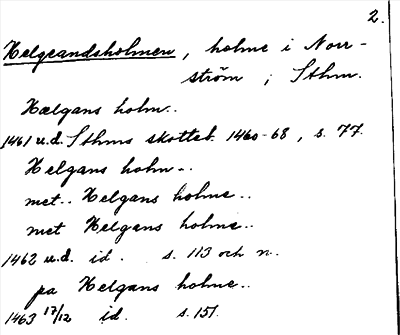 2.
Helgeandsholmen, holme i Norr-
ström, i Sthm.
Hælgans holm..
1461 u.d. Sthms skotteb. 1460-68, s. 77.
Helgans holm..
met.. Helgans holme..
met Helgans holme..
1462 u.d. id. s. 113 och n.
pa Helgans holme..
1463 17/12 id. s. 151.